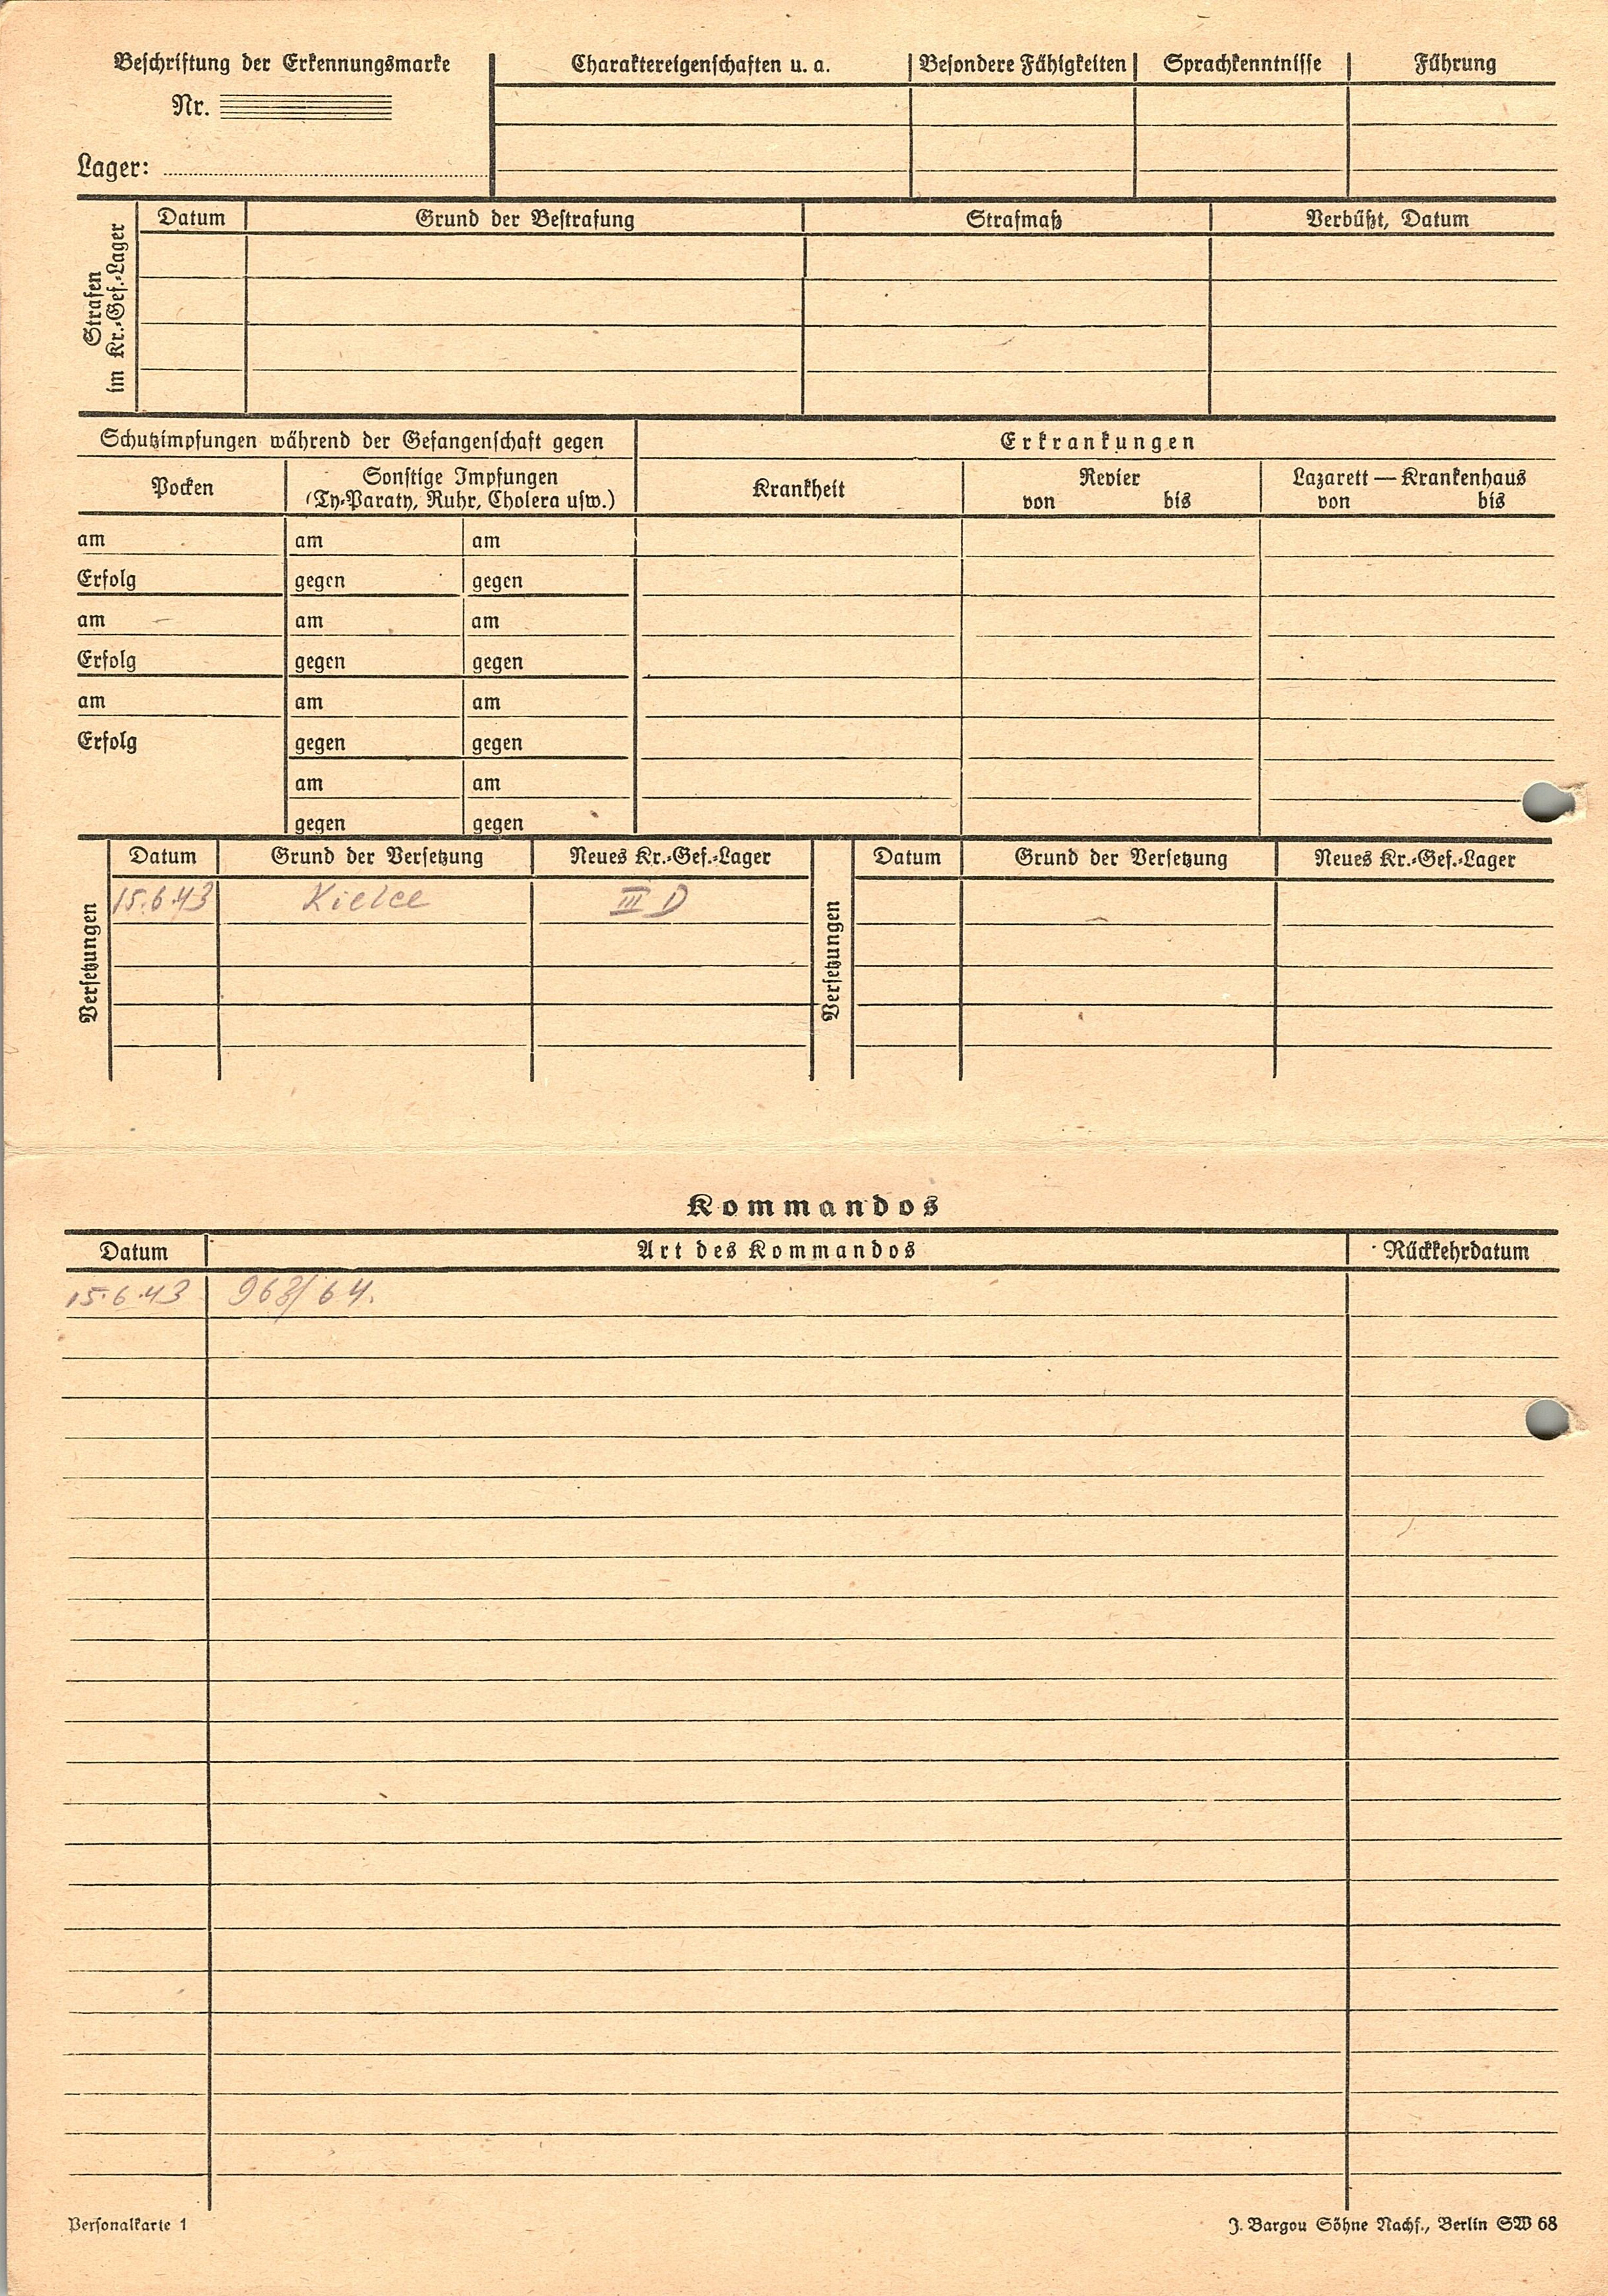 Beschriftung der Erkennungsmarke
Nr.
Lager:
Charaktereigenschaften u. a. Besondere Fähigkeiten Sprachkenntnisse Führung
Strafen
im Kr.-Gef.-Lager
Datum Grund der Bestrafung Strafmaß Verbüßt, Datum
Schutzimpfungen während der Gefangenschaft gegen
Erkrankungen
Pocken
Sonstige Impfungen
(Ty-Paraty, Ruhr, Cholera usw.)
Krankheit
Revier
von bis
Lazarett — Krankenhaus
von bis
am am am
Erfolg gegen gegen
am am am
Erfolg gegen gegen
am am am
Erfolg gegen gegen
am am
gegen gegen
Versetzungen
Datum Grund der Versetzung Neues Kr.-Gef.-Lager
15.6.43 Kielce III D
Versetzungen
Datum Grund der Versetzung Neues Kr.-Gef.-Lager
Kommandos
Datum Art des Kommandos Rückkehrdatum
15.6.43 963/64.
Personalkarte 1
J. Bargou Söhne Nachf., Berlin SW 68